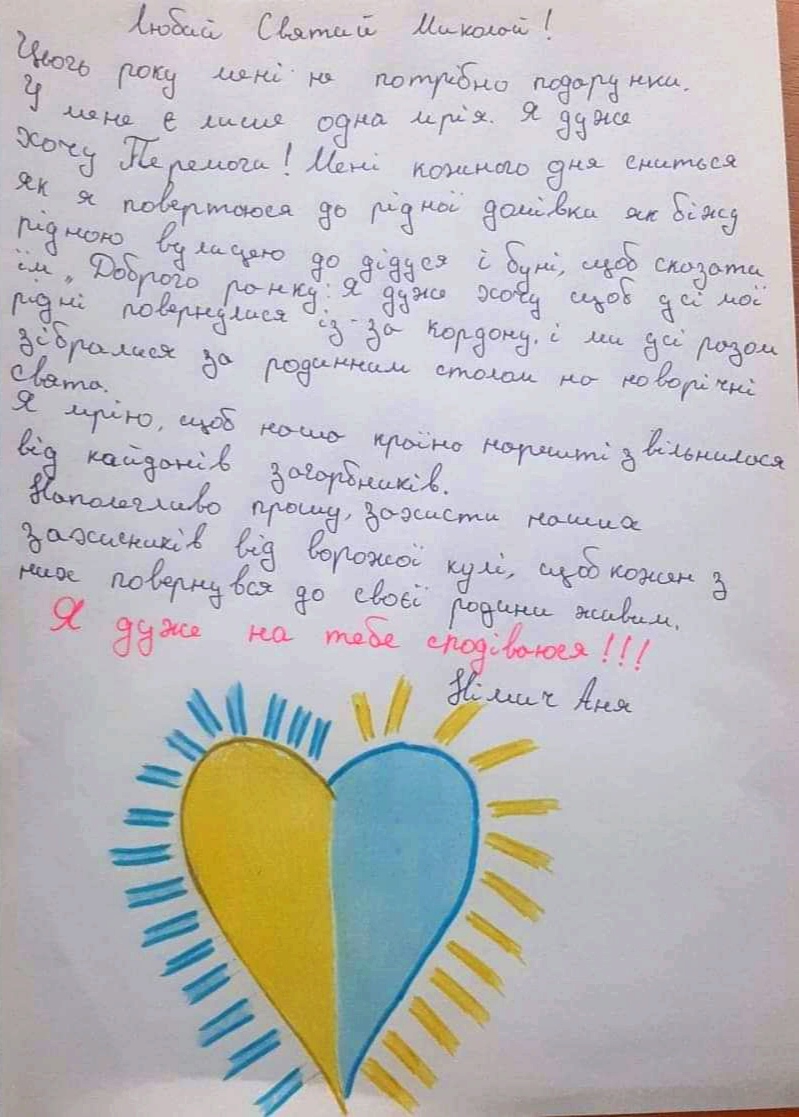 Любий Святий Миколай!
Цього року мені не потрібно подарунки.
У мене є лише одна мрія. Я дуже
хочу Перемоги! Мені кожного дня сниться
як я повертаюся до рідної домівки як біжу
рідною вулицею до дідуся і буні, щоб сказати
їм „Доброго ранку". Я дуже хочу щоб усі мої
рідні повернулися із-за кордону, і ми усі разом
зібралися за родинним столом на новорічні
свята.
Я мрію, щоб наша країна нарешті звільнилася
від кайданів загарбників.
Наполегливо прошу, захисти наших
захисників від ворожої кулі, щоб кожен з
них повернувся до своєї родини живим.
Я дуже на тебе сподіваюся!!!
Німич Аня